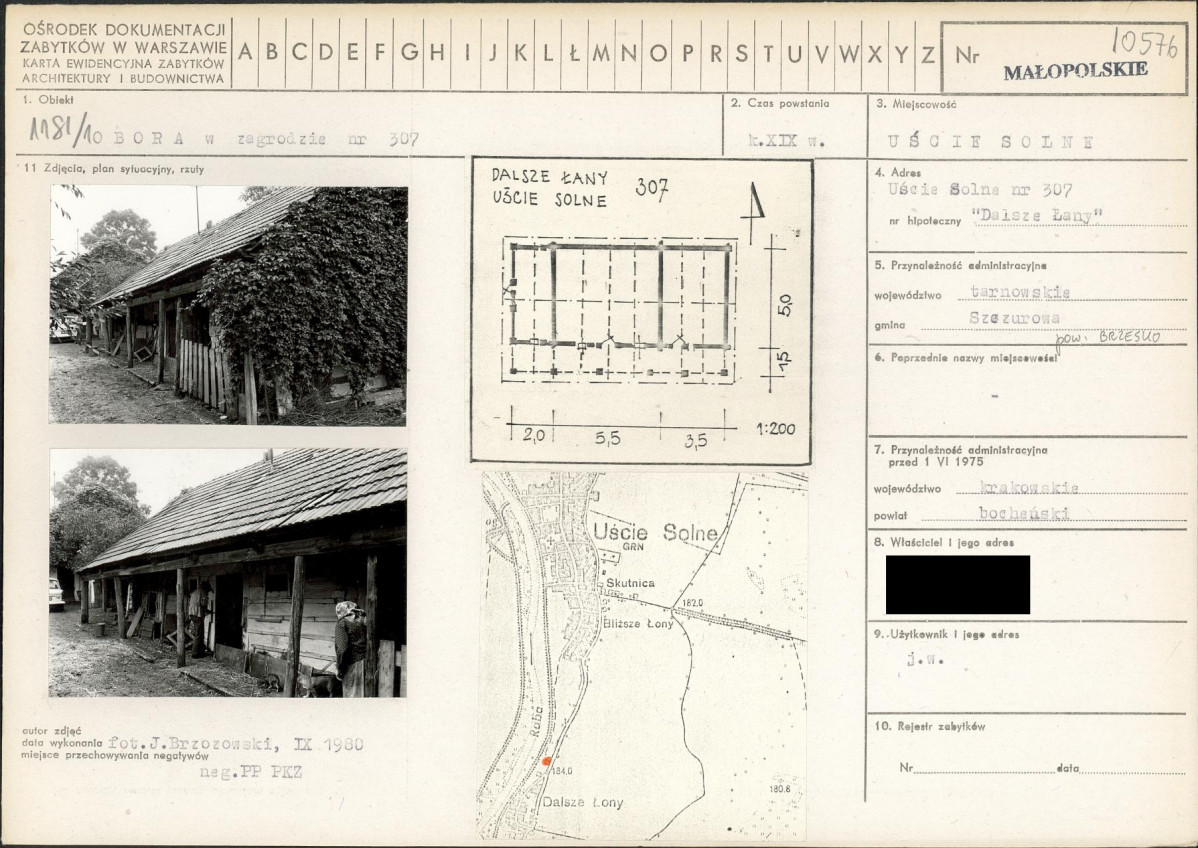 OŚRODEK DOKUMENTACJI
ZABYTKÓW W WARSZAWIE
KARTA EWIDENCYJNA ZABYTKÓW
ARCHITEKTURY I BUDOWNICTWA
A B C D E F G H I J K L Ł M N O P R S T U V W X Y Z
Nr 10576
MAŁOPOLSKIE
1. Obiekt
1181/10 B O R A w zagrodzie nr 307
2. Czas powstania
k.XIX w.
3. Miejscowość
U Ś C I E SOLNE
11 Zdjęcia, plan sytuacyjny, rzuty
DALSZE ŁANY 307
UŚCIE SOLNE
5,0
1,5
2,0 5,5 3,5 1:200
Uście Solne
GRN
Skutnica
182.0
Bliższe Łony
Raba
184.0
180.8
Dalsze Łony
autor zdjęć
data wykonania fot.J.Brzozowski, IX 1980
miejsce przechowywania negatywów
neg.PP PKZ
4. Adres
Uście Solne nr 307
nr hipoteczny "Dalsze Łany"
5. Przynależność administracyjna
województwo tarnowskie
gmina Szczurowa
pow. BRZESKO
6. Poprzednie nazwy miejscowości
-
7. Przynależność administracyjna
przed 1 VI 1975
województwo krakowskie
powiat bocheński
8. Właściciel i jego adres
9. Użytkownik i jego adres
j.w.
10. Rejestr zabytków
Nr data